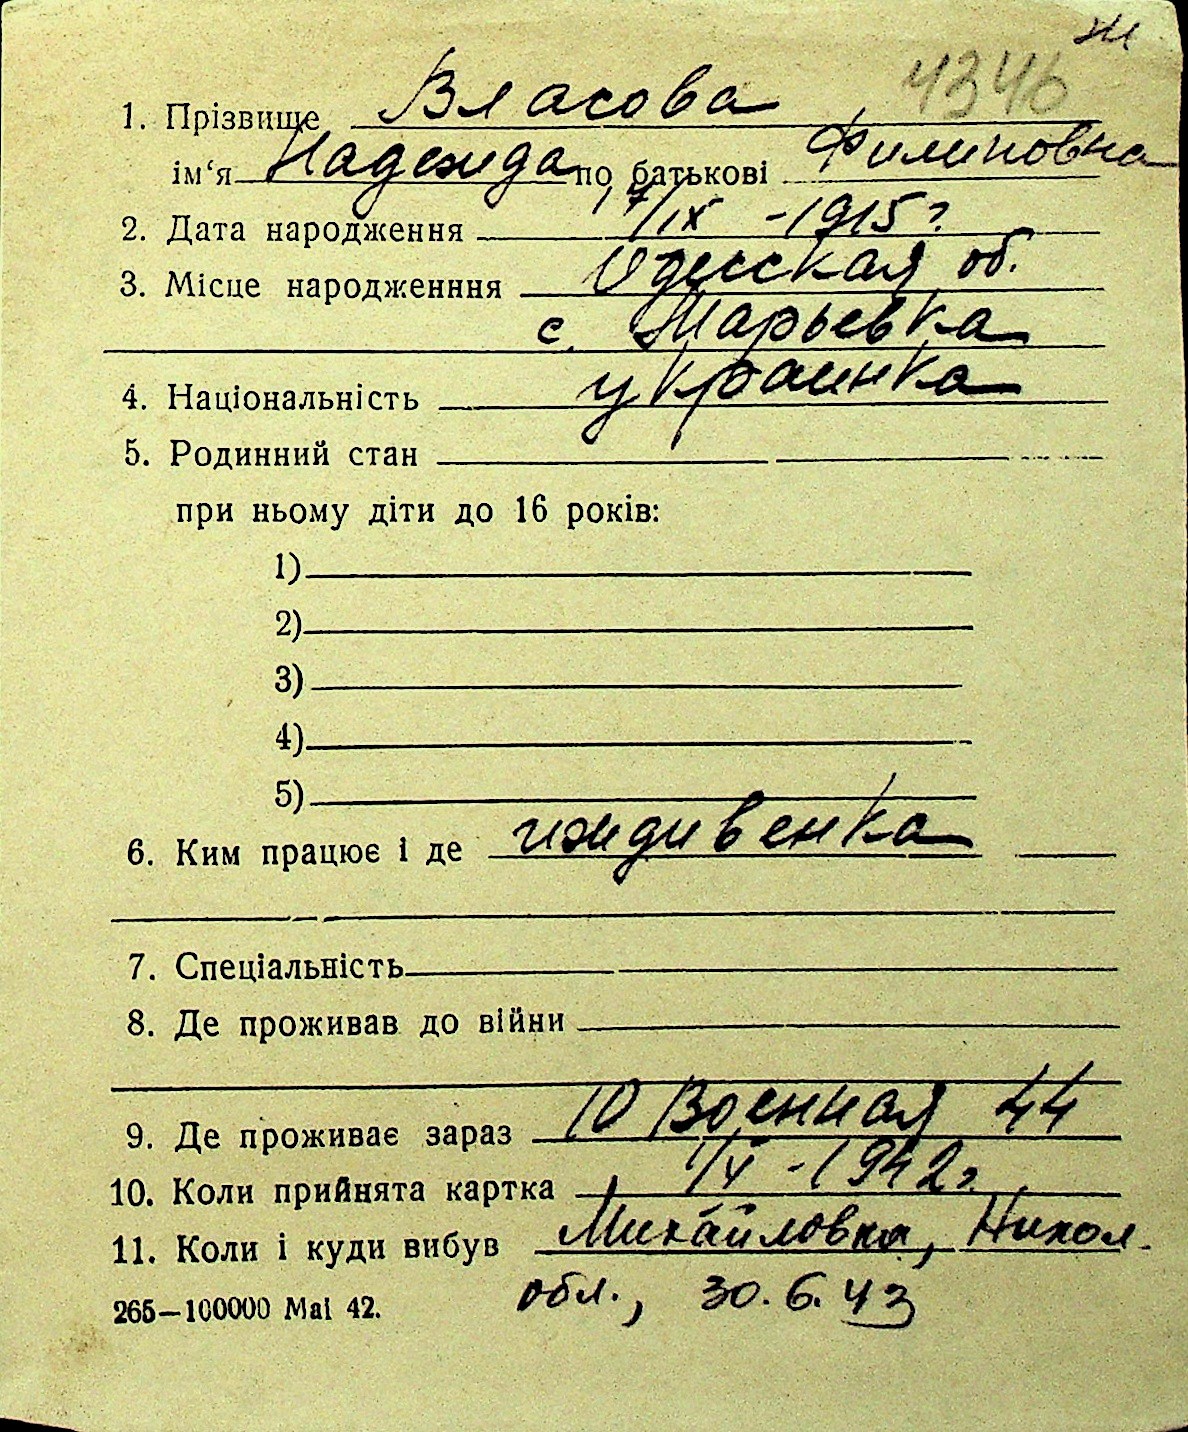 Ж
4346
1. Прізвище Власова
ім‘я Надежда по батькові Филиповна
2. Дата народження 17/IX - 1915 г.
3. Місце народженння Одесская об.
с. Марьевка
4. Національність украинка
5. Родинний стан
при ньому діти до 16 років:
1)
2)
3)
4)
5)
6. Ким працює і де иждивенка
7. Спеціальність
8. Де проживав до війни
9. Де проживає зараз 10 Военная 44
10. Коли прийнята картка 1/V - 1942 г.
11. Коли і куди вибув Михайловка, Никол.
265—100000 Mai 42. обл., 30. 6. 43